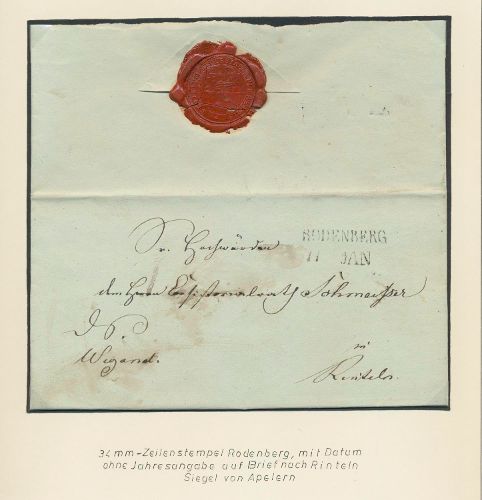 RODENBERG
11 JAN
Sr. Hochwürden
dem Herrn Consistorialrath Schmeisser
Wigand.
in
Rinteln.
34 mm-Zeilenstempel Rodenberg, mit Datum
ohne Jahresangabe auf Brief nach Rinteln
Siegel von Apelern